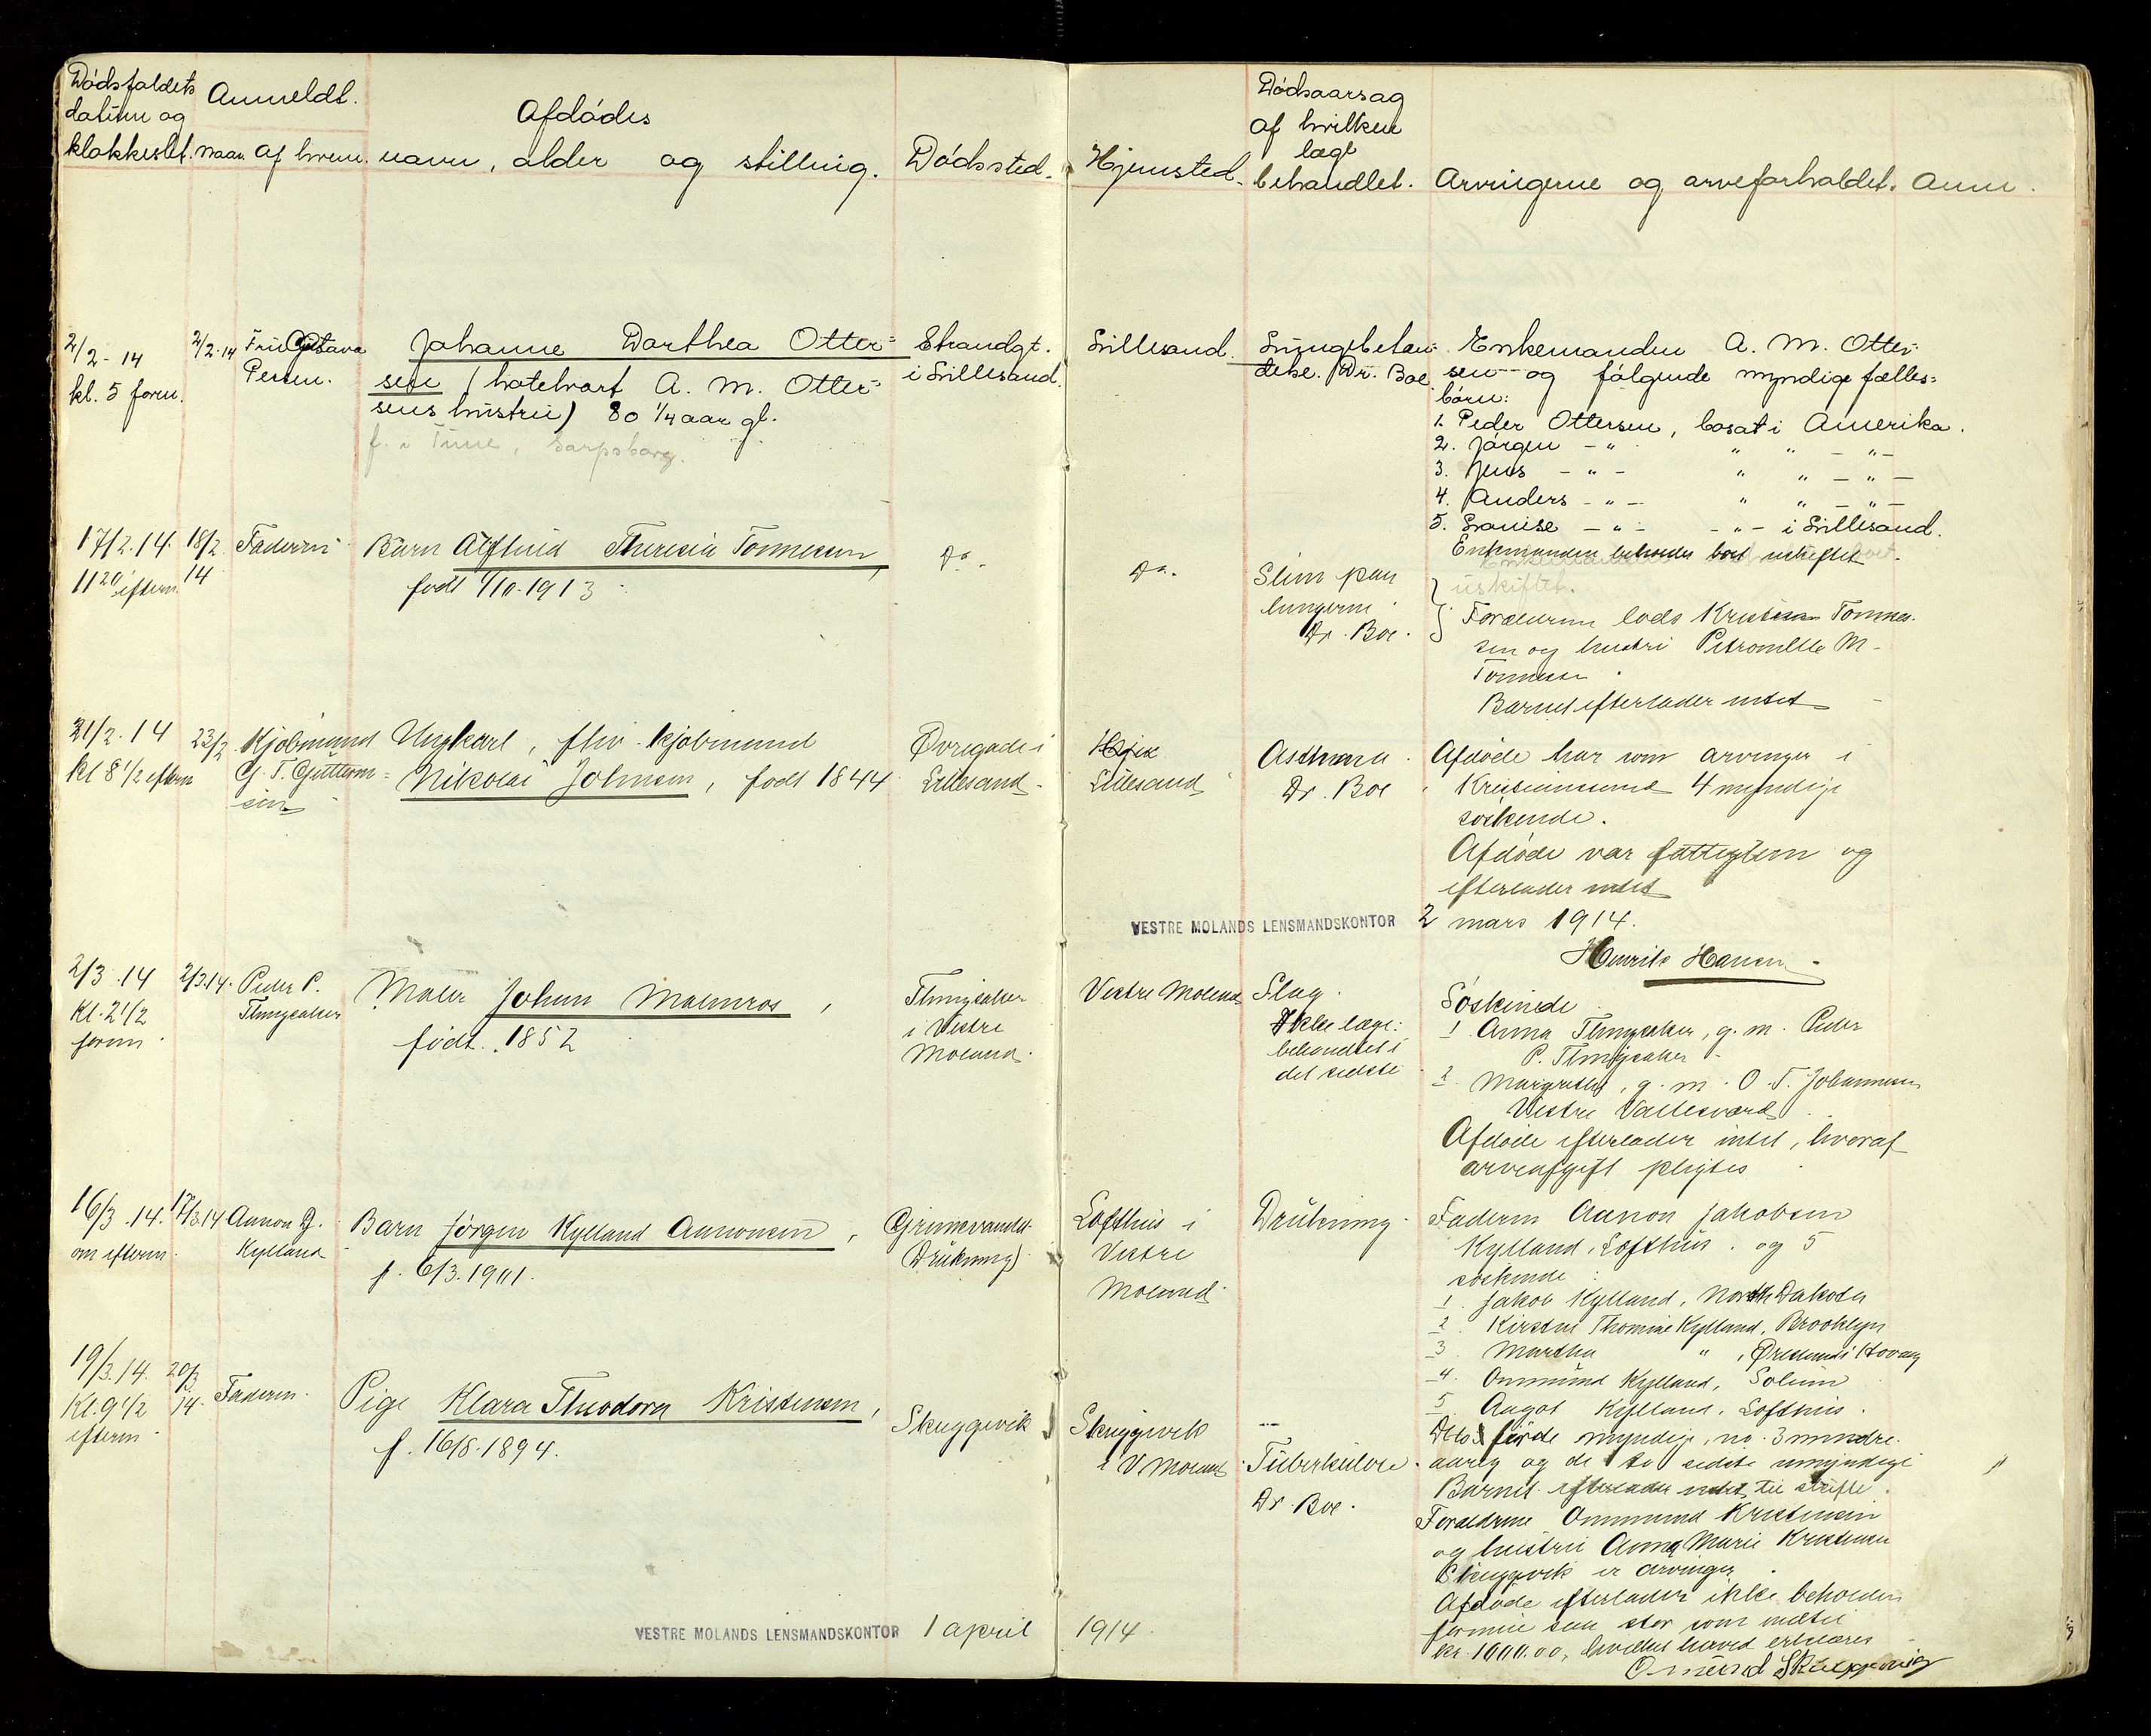 Dødsfaldets
datum og
klokkeslet.
Anmeldt.
naar. af hvem.
Afdødes
navn, alder og stilling.
Dødssted.
Hjemsted.
Dødsaarsag
af hvilken
læge
behandlet.
Arvingerne og arveforholdet. Anm.
2/2 - 14
kl. 5 form.
2/2-14
Fru Gustava
Persen.
Johanne Dorthea Otter=
sen (hotelvært A. M. Otter=
sens hustru) 80 1/4 aar gl.
f. i Tune, Sarpsborg.
Strandgt.
i Lillesand.
Lillesand.
Lungebetæn=
delse. Dr. Boe.
Enkemanden A. M. Otter-
sen og følgende myndige fælles=
børn:
1. Peder Ottersen, bosat i Amerika.
2. Jørgen - " - " " - " -
3. Jens - " - " " - " -
4. Anders - " - " " - " -
5. Lovise - " - - " - i Lillesand.
Enkemanden beholder boet uskiftet
uskiftet.
17/2.14.
11 20 eftern.
18/2
14
Faderen
Barn Theresia Tønnesen
født /10.1913
Do.
Do.
Slim paa
lungerne
Dr. Boe.
Forældrene lods Kristian Tønnes-
sen og hustru Petronelle M.
Tønnesen
Barnet efterlader intet
21/2.14
kl 8 1/2 eftern
23/2
Kjøbmand
G. T. Guttorm=
sen
Ungkarl, fhv. kjøbmand
Nikolai Johnsen, født 1844
Øvregade i
Lillesand.
Lillesand
Asthma.
Dr. Boe
Afdøde har som arvinger i
Kristianssund 4 myndige
søskende.
Afdøde var fattiglem og
efterlader intet
VESTRE MOLANDS LENSMANDSKONTOR 2 mars 1914.
Henrik Hansen
2/3.14
Kl. 2 1/2
form
2/3.14.
Peder P.
Tingsaker
Maler Johan Malmros,
født 1852
Tingsaker
i Vestre
Moland.
Vestre Moland
Slag.
Ikke læge=
behandlet i
det sidste
Søskende
1 Anna Tingsaker, g. m. Peder
P. Tingsaker
2 Margrethe, g. m. O. T. Johannesen
Vestre Vallesværd
Afdøde efterlader intet, hvoraf
arveafgift pligtes
16/3.14.
om eftern.
17/3.14
Aanon J.
Kylland
Barn Jørgen Kylland Aanonsen,
f. 6/3.1901.
Grimevandet
(Drukning)
Lofthus i
Vestre
Moland.
Drukning.
Faderen Aanon Jakobsen
Kylland, Lofthus. og 5
søskende:
1. Jakob Kylland, North Dakota
2 Kirstine Thomine Kylland, Brooklyn
3 Martha " , Øresund i Høvaag
4. Ommund Kylland, Solum
5 Aagot Kylland, Lofthus.
myndige, no. 3 mindre-
aarig og de to sidste umyndige
Barnet efterlader intet til skifte.
19/3.14.
Kl. 9 1/2
eftern.
20/3
14.
Faderen.
Pige Klara Theodora Kristensen,
f. 16/8.1894.
Skuggevik
Skuggevik
i V Moland
Tuberkulose.
Dr. Boe.
Forældrene Ommund Kristensen
og hustru Anna Marie Kristensen
Skuggevik er arvinger
Afdøde efterlader ikke beholden
formue saa stor som indtil
kr. 1000.00, hvilket herved erklæres
VESTRE MOLANDS LENSMANDSKONTOR 1 april 1914.
Omund Skuggevig